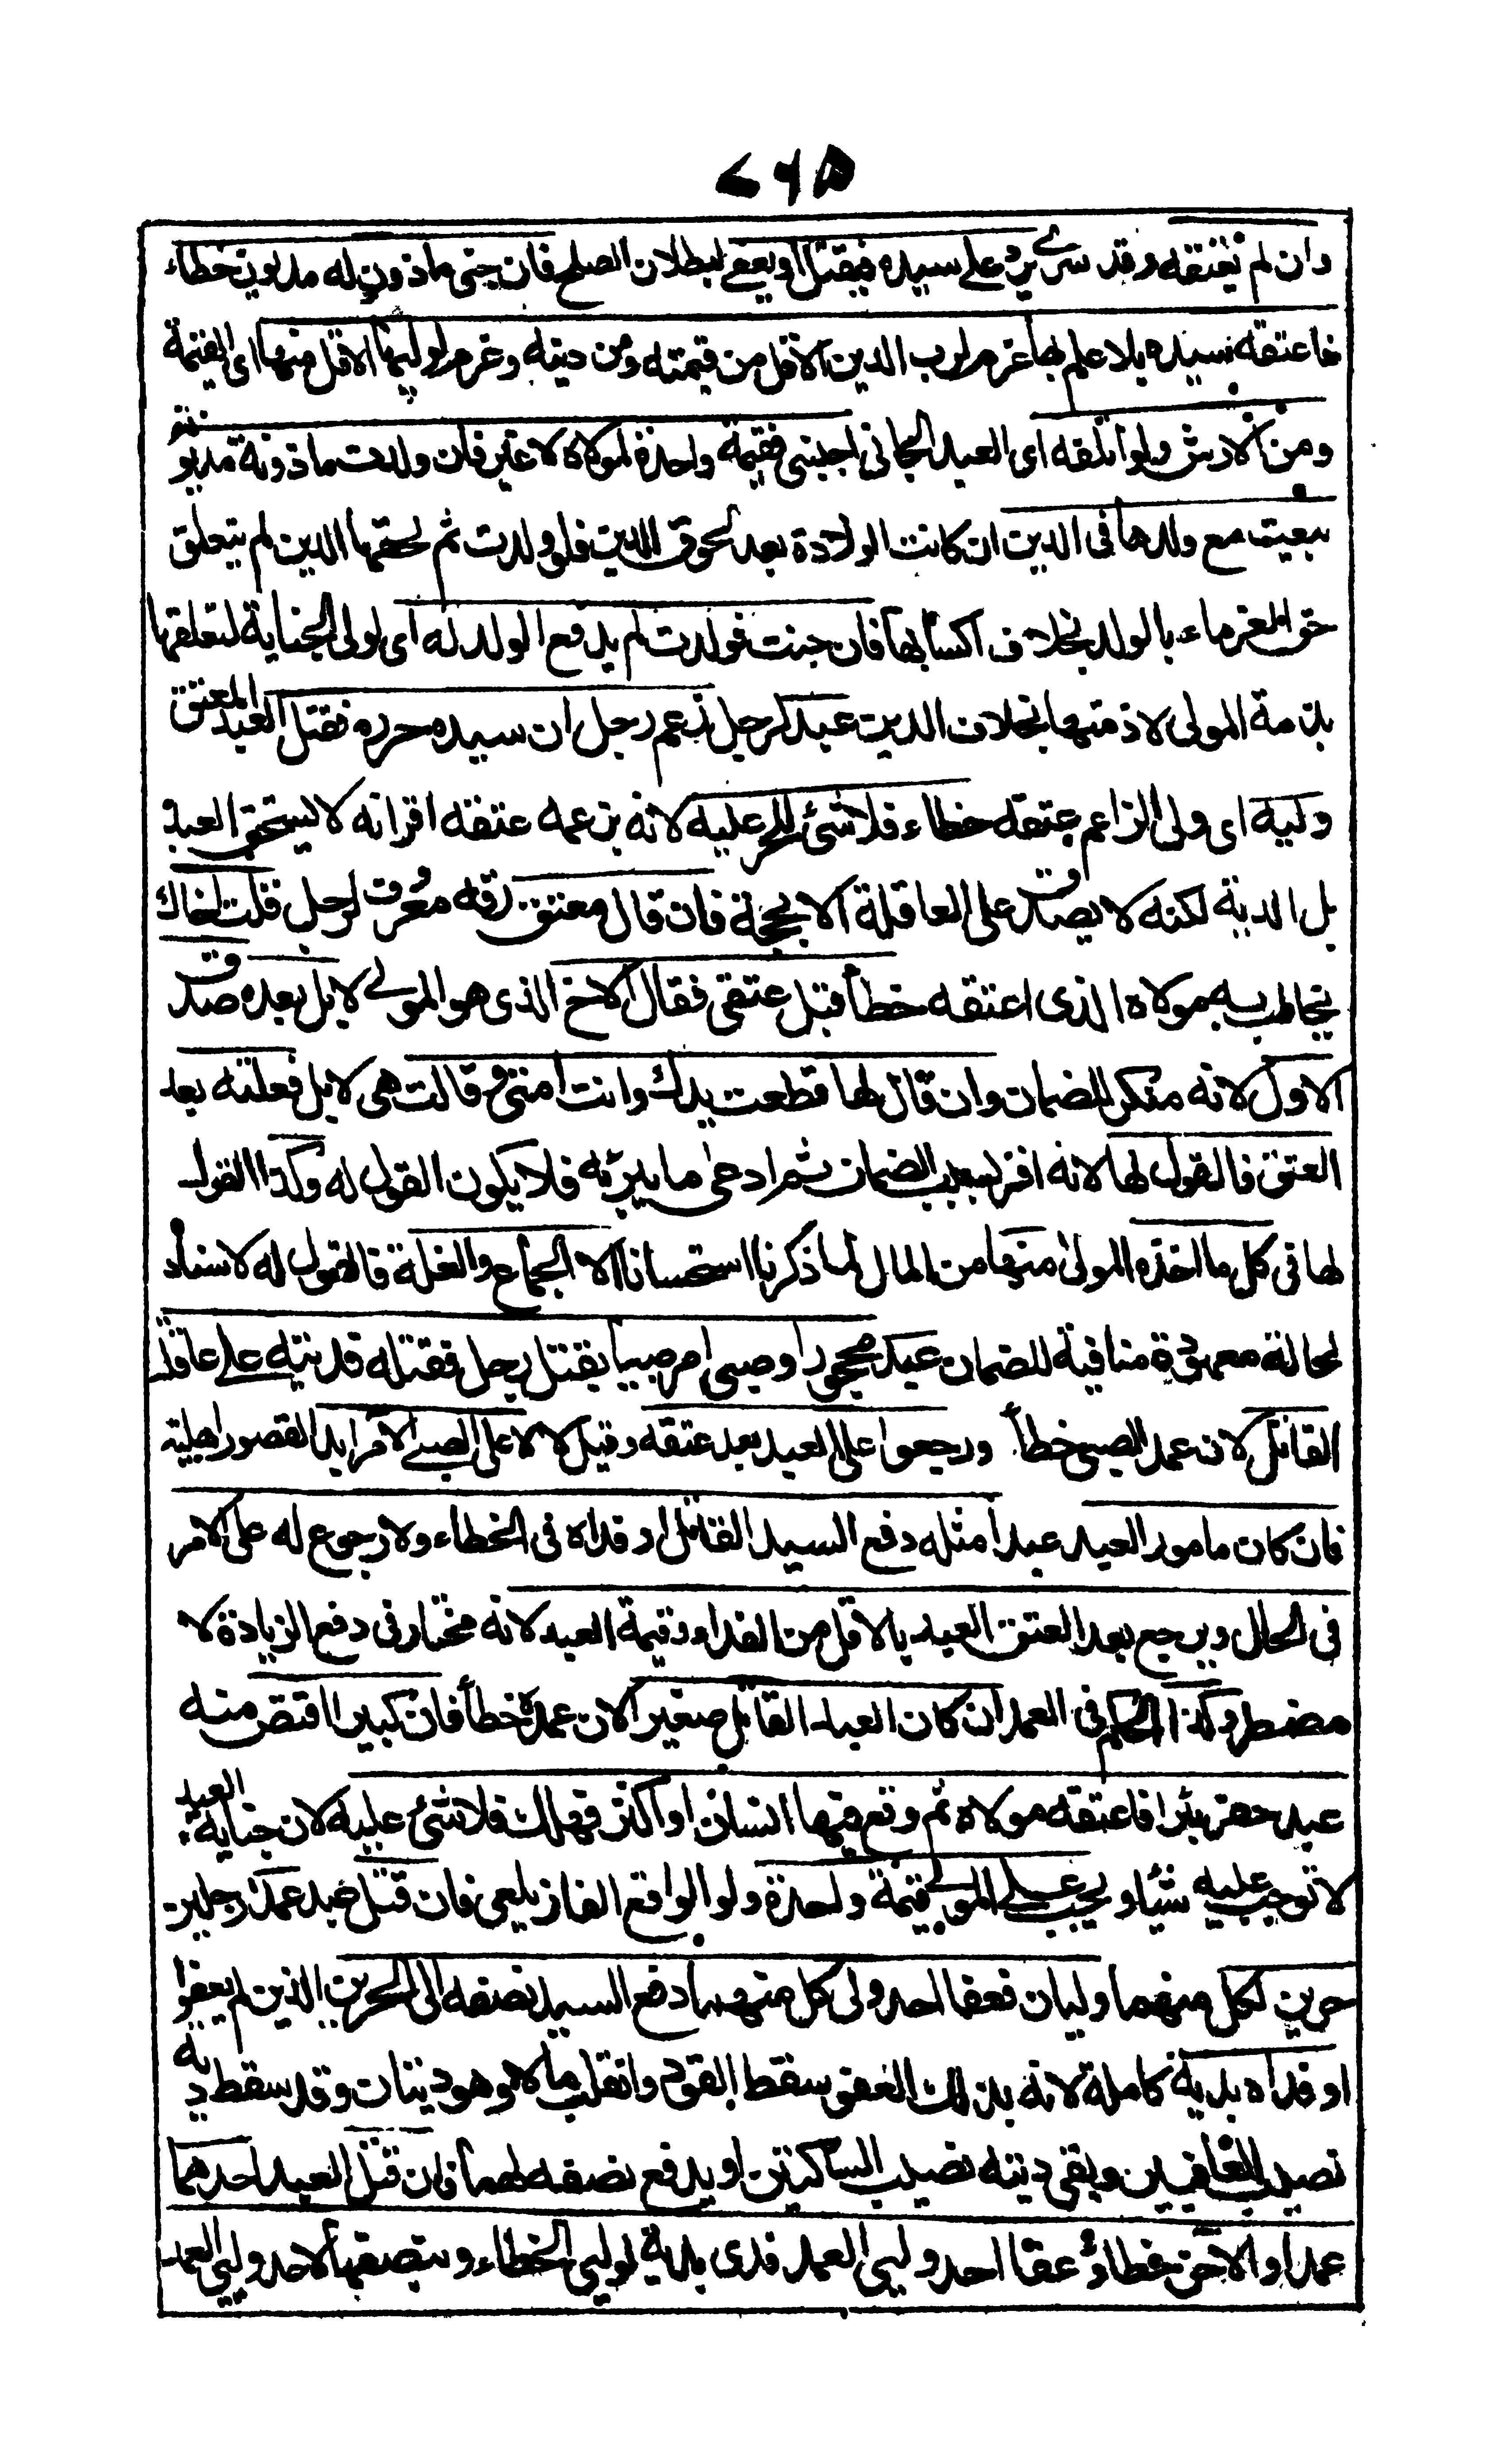 ٧٦٥
وان لم يعتقه وقد سرى يرد على سيده فيقتل او يعفى لبطلان الصلح فان جنى ماذون له مديون خطاء
فاعتقه سيده بلا علم بها غرم لرب الدين الاقل من قيمته ومن دينه وغرم لوليها الاقل منها اى القيمة
ومن الارش ولو اتلفه اى العبد الجانى اجنبى فقيمة واحدة لمولاه لا غير فان ولدت ماذونة مديونة
بيعت مع ولدها فى الدين ان كانت الولادة بعد لحوق الدين فلو ولدت ثم لحقها الدين لم يتعلق
حق الغرماء بالولد بخلاف اكسابها فان جنت فولدت لم يدفع الولد له اى لولى الجناية لتعلقها
بذمة المولى لا ذمتها بخلاف الدين عبد لرجل زعم رجل ان سيده حرره فقتل العبد المعتق
وليه اى ولى الزاعم بعتقه خطاء فلا شئ للحر عليه لانه بزعمه عتقه اقرانه لا يستحق العبد
بل الدية لكنه لا يصدق على العاقلة الا بحجة فان قال معتق رقه معروف لرجل قتلت اخاك
يخاطب به مولاه الذى اعتقه خطأ قبل عتقى فقال الاخ الذى هو المولى لا بل بعده صدق
الاول لانه منكر للضمان وان قال لها قطعت يدك وانت امتى وقالت هى لا بل فعلته بعد
العتق فالقول لها لانه اقر بسبب الضمان ثم ادعى ما يبرئه فلا يكون القول له وكذا القول
لها فى كل ما اخذه المولى منها من المال لما ذكرنا استحسانا الا الجماع والغلة فالقول له لاسناده
لحالة معهودة منافية للضمان عبد محجور او صبى امر صبيا بقتل رجل فقتله فديته على عاقلة
القاتل لان عمد الصبى خطأ ورجعوا على العبد بعد عتقه وقيل لا لا على الصبى الآمر ابدا لقصور اهليته
فان كان مامور العبد عبدا مثله دفع السيد القاتل او فداه فى الخطاء ولا رجوع له على الامر
فى الحال ويرجع بعد العتق العبد بالاقل من الفداء وقيمة العبد لانه مختار فى دفع الزيادة لا
مضطر وكذا الحكم فى العمد ان كان العبد القاتل صغيرا لان عمده خطأ فان كبيرا اقتص منه
عبد حفر بئرا فاعتقه مولاه ثم وقع فيها انسان او اكثر فهلك فلا شئ عليه لان جناية العبد
لا توجب عليه شيئا ويجب على المولى قيمة واحدة ولو الواقع الفا زيلعى فان قتل عبد عمدا رجلين
حرين لكل منهما وليان فعفا احد ولى كل منهما دفع السيد نصفه الى الحرين الذين لم يعفوا
او فداه بدية كاملة لانه بذلك العفو سقط القود وانقلب مالا وهو ديتان وقد سقط دية
نصيب العافيين وبقى دية نصيب الساكتين او يدفع نصفه لهما فان قتل العبد احدهما
عمدا والآخر خطاء وعفا احد وليى العمد فدى بدية لوليى الخطاء وبنصفها لاحد وليى العمد